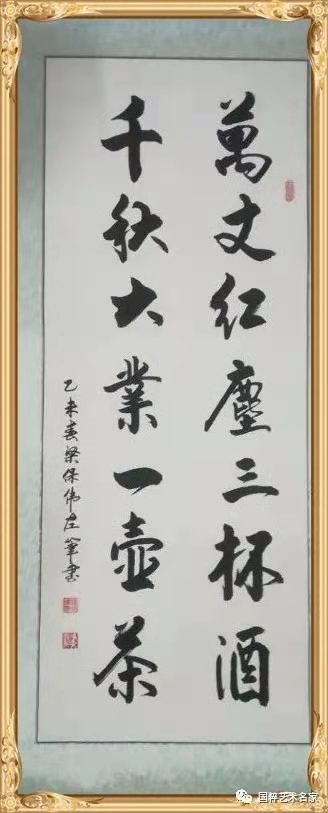 萬丈紅塵三杯酒
千秋大業一壺茶
乙未春梁保偉左筆書
国粹艺术名家